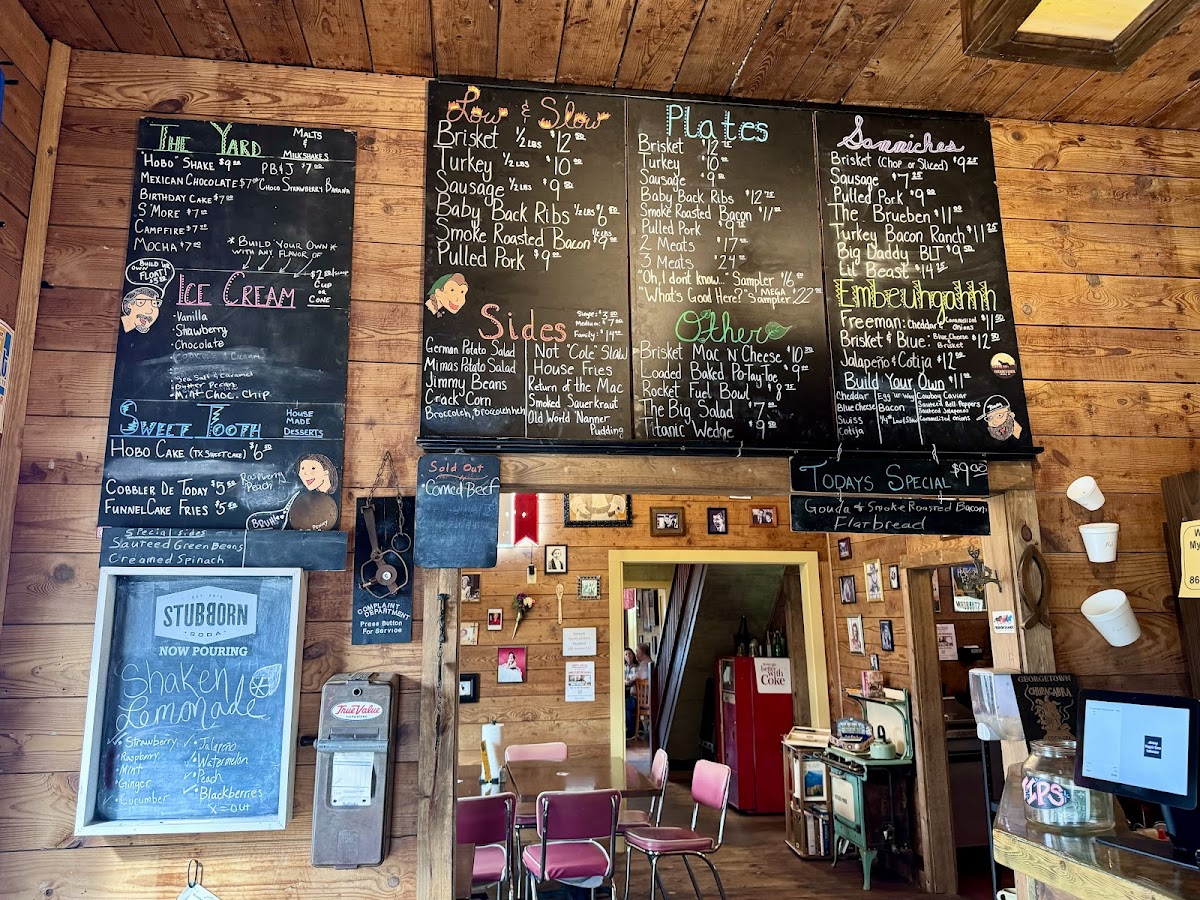 THE YARD
MALTS
&
MILKSHAKES
"HOBO" SHAKE $9.00
PB&J $7.00
MEXICAN CHOCOLATE $7.00
CHOCO STRAWBERRY BANANA
BIRTHDAY CAKE $7.00
S'MORE $7.00
CAMPFIRE $7.00
MOCHA $7.00
*BUILD YOUR OWN*
WITH ANY FLAVOR OF
BUILD YOUR
OWN FLOAT!
ICE CREAM
$2.50/scoop
CUP
OR
CONE
·Vanilla
·Strawberry
·Chocolate
·Sea Salt & Caramel
·Butter Pecan
·Mint Choc. Chip
SWEET TOOTH
HOUSE
MADE
DESSERTS
HOBO CAKE (TX SWEET CAKE) $6.50
COBBLER DE TODAY $5.50
Raspberry
Peach
FUNNEL CAKE FRIES $5.50
Special Sides
Sauteed Green Beans
Creamed Spinach
EST. 2015
STUBBORN
·SODA·
NOW POURING
Shaken
Lemonade
Strawberry
Raspberry
Mint
Ginger
Cucumber
Jalapeño
Watermelon
Peach
Blackberries
X = out
TrueValue
HARDWARE
COMPLAINT
DEPARTMENT
Press Button
For Service
Low & Slow
Brisket ½ LBS $12.50
Turkey ½ LBS $10.00
Sausage ½ LBS $9.00
Baby Back Ribs ½ LBS $6.50
Smoke Roasted Bacon ½ LBS $9.00
Pulled Pork $9.00
Sides
Single: $3.50
Medium: $7.00
Family: $14.00
German Potato Salad
Mimas Potato Salad
Jimmy Beans
Crack Corn
Broccoleh, broccoleh heh
Not "Cole" Slaw
House Fries
Return of the Mac
Smoked Sauerkraut
Old World 'Nanner
Pudding
Plates
Brisket $12.75
Turkey $10.75
Sausage $9.75
Baby Back Ribs $12.75
Smoke Roasted Bacon $11.00
Pulled Pork $9.75
2 Meats $17.00
3 Meats $24.00
"Oh, I dont know..." Sampler $16.00
"What's Good Here?" MEGA Sampler $22.00
Other
Brisket Mac N' Cheese $10.50
Loaded Baked Po-Tay-Toe $9.00
Rocket Fuel Bowl $8.75
The Big Salad $7.00
Titanic Wedge $9.00
Sammiches
Brisket (Chop or Sliced) $9.25
Sausage $7.25
Pulled Pork $9.00
The Brueben $11.00
Turkey Bacon Ranch $11.25
Big Daddy BLT $9.50
Lil' Beast $14.25
Embeuhgahhh
Freeman: Cheddar & Caramelized Onions $11.50
Brisket & Blue: Blue Cheese Brisket $12.50
Jalapeño & Cotija $12.00
Build Your Own $11.00
Cheddar
Blue Cheese
Swiss
Cotija
Egg
Bacon
Cowboy Caviar
Sauteed Bell Peppers
Sauteed Jalapenos
Caramelized Onions
Sold Out
Corned Beef
TODAYS SPECIAL $9.00
Gouda & Smoke Roasted Bacon
Flatbread
better
with
Coke
GEORGETOWN
CHUPACABRA
TIPS